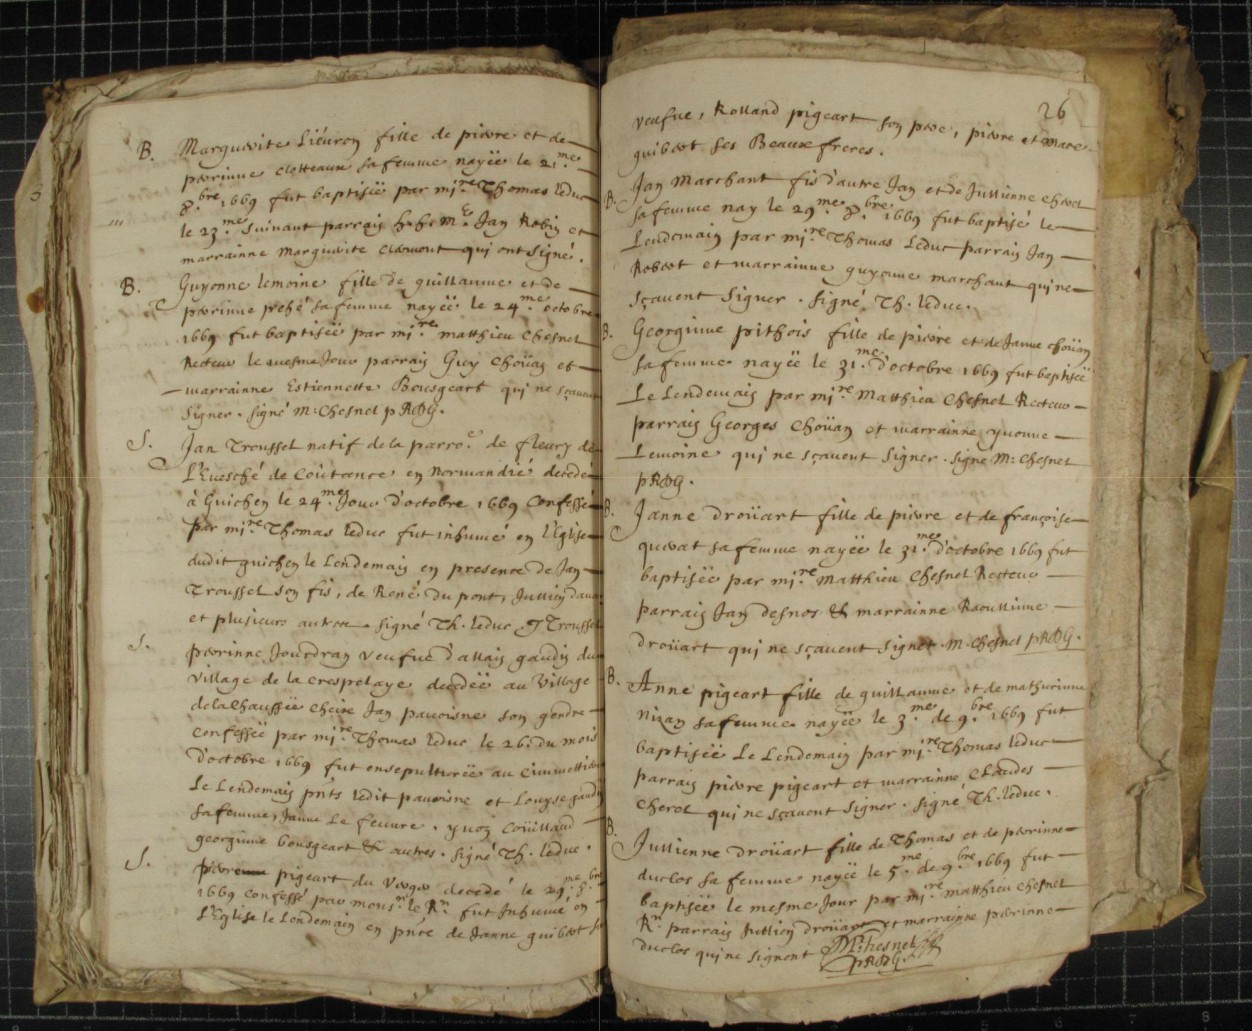 B. Marguerite Liévron fille de pierre et de
perrinne clotteaux sa femme nayëe le 21.me
8.bre 1669 fut baptisëe par mi.re Thomas leduc
le 23.me suiuant parrain h. h. Me Jan Robin et
marrainne Marguerite clermont qui ont signé.
B. Guyonne lemoine fille de guillaume et de
perrinne préhé sa femme nayëe le 24.me octobre
1669 fut baptisëe par mi.re matthieu chesnel
Recteur le mesme Jour parrain Guy choüan et
marrainne Estiennette Bousgeart qui ne sçauent
signer. signé M. Chesnel pRDG.
S. Jan Troussel natif de la parro.e de fleury de
L'Euesché de Coûtence en Normandie decedé
à Guichen le 24.me Jour d'octobre 1669 Confessé
par mi.re Thomas leduc fut inhumé en l'Eglise
dudit guichen le Lendemain en presence de Jan
Troussel son fis, de René du pont, Jullien
et plusieurs autres. signé Th. leduc. J Troussel
S. perrinne Jourdran veufue d'allain gaudin du
village de la crespelaye decedëe au village
de la Chaussëe cheix Jan pauoisne son gendre
confessëe par mi.re Thomas leduc le 26. du mois
d'octobre 1669 fut ensepulturëe au Cimmettiere
Le Lendemain pnts ledit pauoisne et Louyse gaudin
sa femme, Janne Le feuure. yuon Coüillaud
georginne bousgeart & autres. signé Th. leduc.
S. pigeart du decedé le 29.me 8.bre
1669 confessé par mons.r le R.r fut Inhumé en
L'Eglise le Lendemain en pnce de Janne guibert sa
26
veufue, Rolland pigeart son pere, pierre et
guibert ses Beaux freres.
B. Jan Marchant fis d'autre Jan et de Jullienne
sa femme nay le 29.me 8.bre 1669 fut baptisé le
Lendemain par mi.re Thomas Leduc parrain Jan
Robert et marrainne guyonne marchant qui ne
sçauent signer. signé Th. leduc.
B. Georginne pithois fille de pierre et de Janne choüan
sa femme nayëe le 31.me d'octobre 1669 fut baptisëe
Le Lendemain par mi.re Matthieu Chesnel Recteur
parrain Georges Choüan et marrainne yuonne
Lemoine qui ne sçauent signer. signé M. Chesnel
pRDG.
B. Janne droüart fille de pierre et de françoise
sa femme nayëe le 31.me d'octobre 1669 fut
baptisëe par mi.re Matthieu Chesnel Recteur
parrain Jan desnos & marrainne Raoullinne
droüart qui ne sçauent signer. M. Chesnel pRDG.
B. Anne pigeart fille de guillaume et de mathurinne
Nizan sa femme nayëe le 3.me de 9.bre 1669 fut
baptisëe Le Lendemain par mi.re Thomas leduc
parrain pierre pigeart et marrainne Claudes
Cherel qui ne sçauent signer. signé Th. leduc.
B. Jullienne droüart fille de Thomas et de perrinne
duclos sa femme nayëe le 5.me de 9.bre 1669 fut
baptisëe le mesme Jour par mi.re matthieu chesnel
R.r parrain Jullien droüart et marrainne perrinne
duclos qui ne signent M. Chesnel
pRDG.